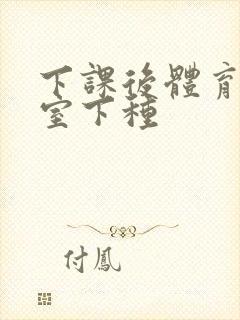 下課後體育
室下種
付鳳